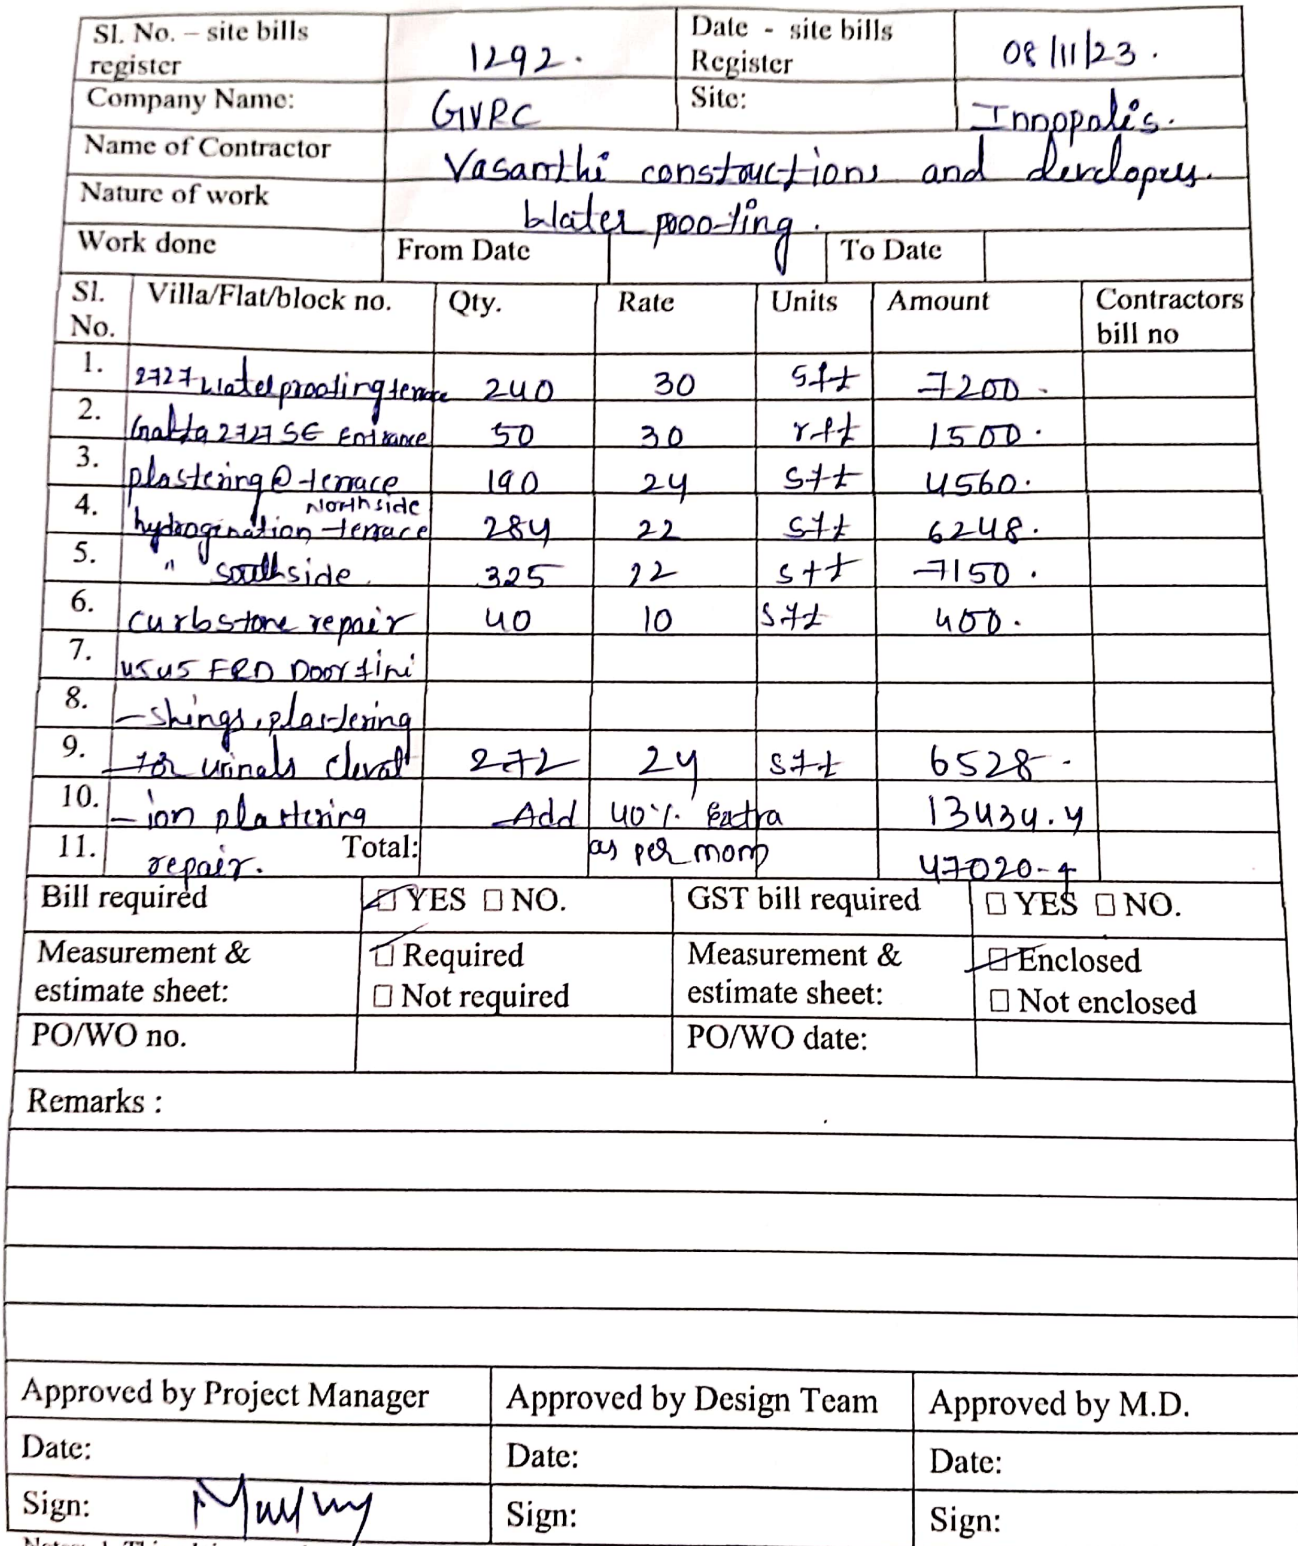 Sl. No. – site bills register 1292. Date - site bills Register 08/11/23.
Company Name: GVRC Site: Innopolis.
Name of Contractor Vasanthi constructions and developers.
Nature of work Water proofing.
Work done From Date To Date
Sl. No. Villa/Flat/block no. Qty. Rate Units Amount Contractors bill no
1. 2727 Waterproofing terrace 240 30 sft 7200.
2. 2727 SE Entrance 50 30 rft 1500.
3. plastering @ terrace 190 24 sft 4560.
Northside
4. hydrogination terrace 284 22 sft 6248.
5. " southside 325 22 sft 7150.
6. curbstone repair 40 10 sft 400.
7. 4545 FRD Door fini
8. -shings, plastering
9. for urinals elevat 272 24 sft 6528.
10. -ion plastering Add 40% Extra 13434.4
11. repair. Total: as per 47020.4
Bill required YES NO. GST bill required YES NO.
Measurement & estimate sheet: Required Not required Measurement & estimate sheet: Enclosed Not enclosed
PO/WO no. PO/WO date:
Remarks :
Approved by Project Manager Approved by Design Team Approved by M.D.
Date: Date: Date:
Sign: Sign: Sign: